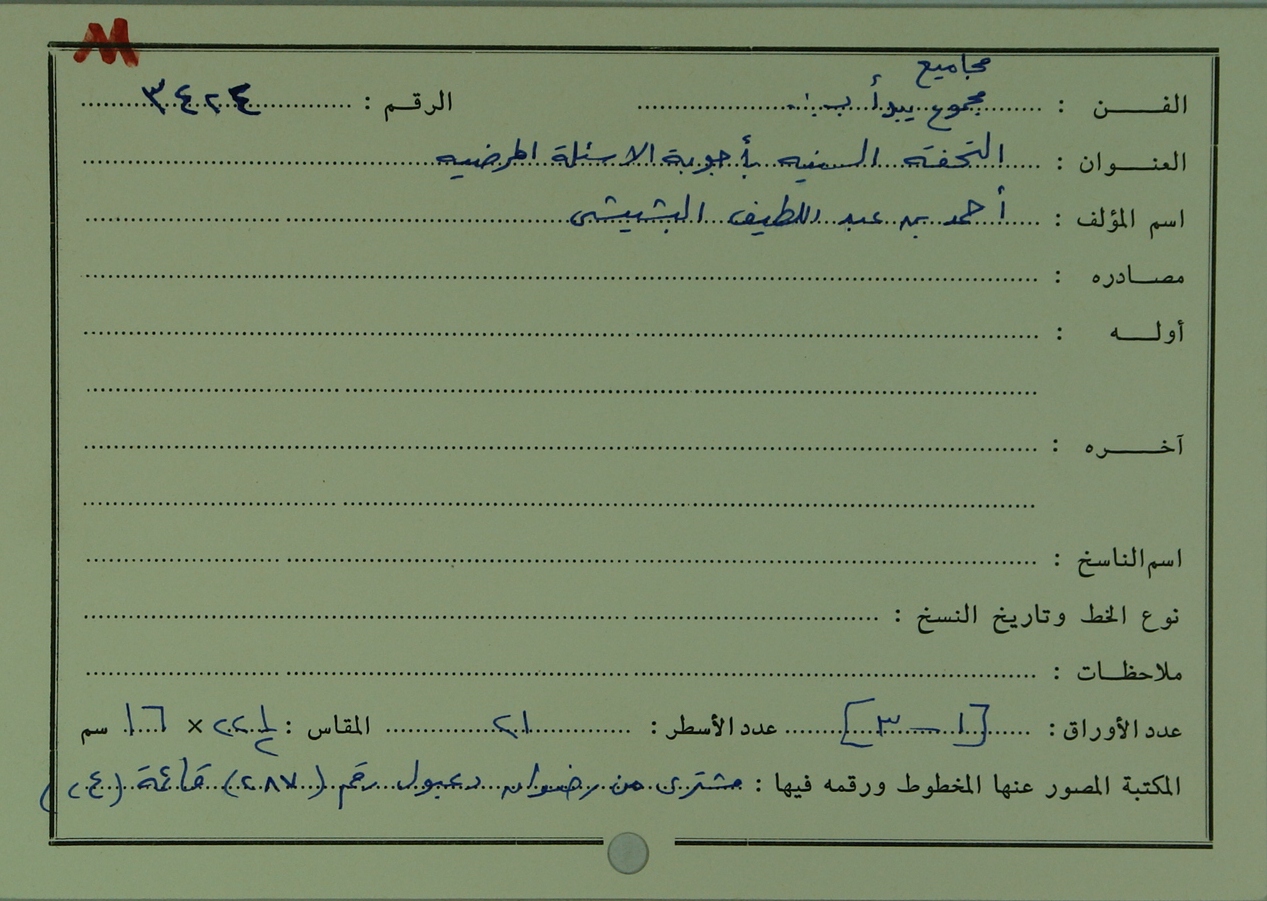 مجاميع
الفـــن : مجموع يبدأ بـ : الرقـم : ٣٤٢٤
العنـوان : التحفة السنيه بأجوبة الاسئلة المرضيه
اسم المؤلف : أحمد بن عبد اللطيف البشبيشى
مصـادره :
أولـــه :
آخـــره :
اسم الناسخ :
نوع الخط وتاريخ النسخ :
ملاحظـات :
عدد الأوراق : [١ — ٣] عدد الأسطر : ٢١ المقاس : × ١٦ سم
المكتبة المصور عنها المخطوط ورقمه فيها : مشترى من رضوان دعبول رقم (٢٨٧) قائمة (٤)